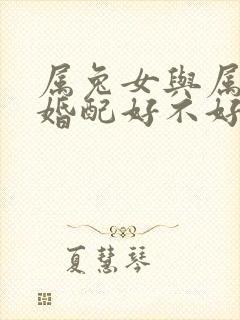 属兔女與属
婚配好不好
夏慧琴